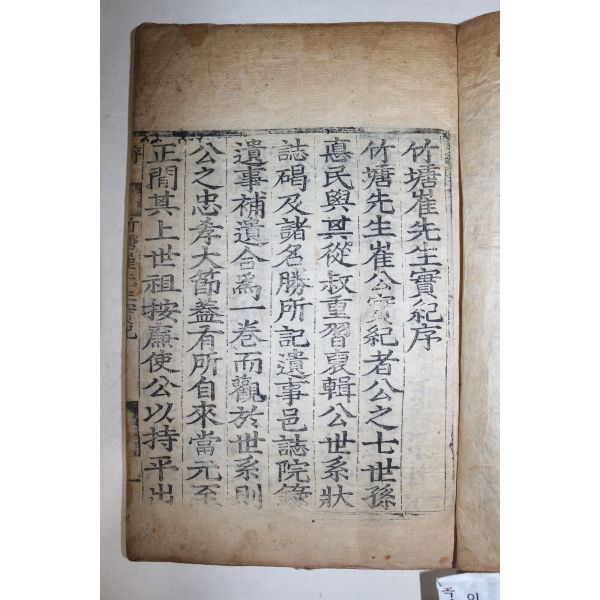 竹塘崔先生實紀序
竹塘先生崔公實紀者公之七世孫
惪民與其從叔重習裒輯公世系狀
誌碣及諸名勝所記遺事邑誌院錄
遺事補遺合為一卷而觀於世系則
公之忠孝大節蓋有所自來當元至
正間其上世祖按廉使公以持平出
竹塘崔先生實紀
序
一